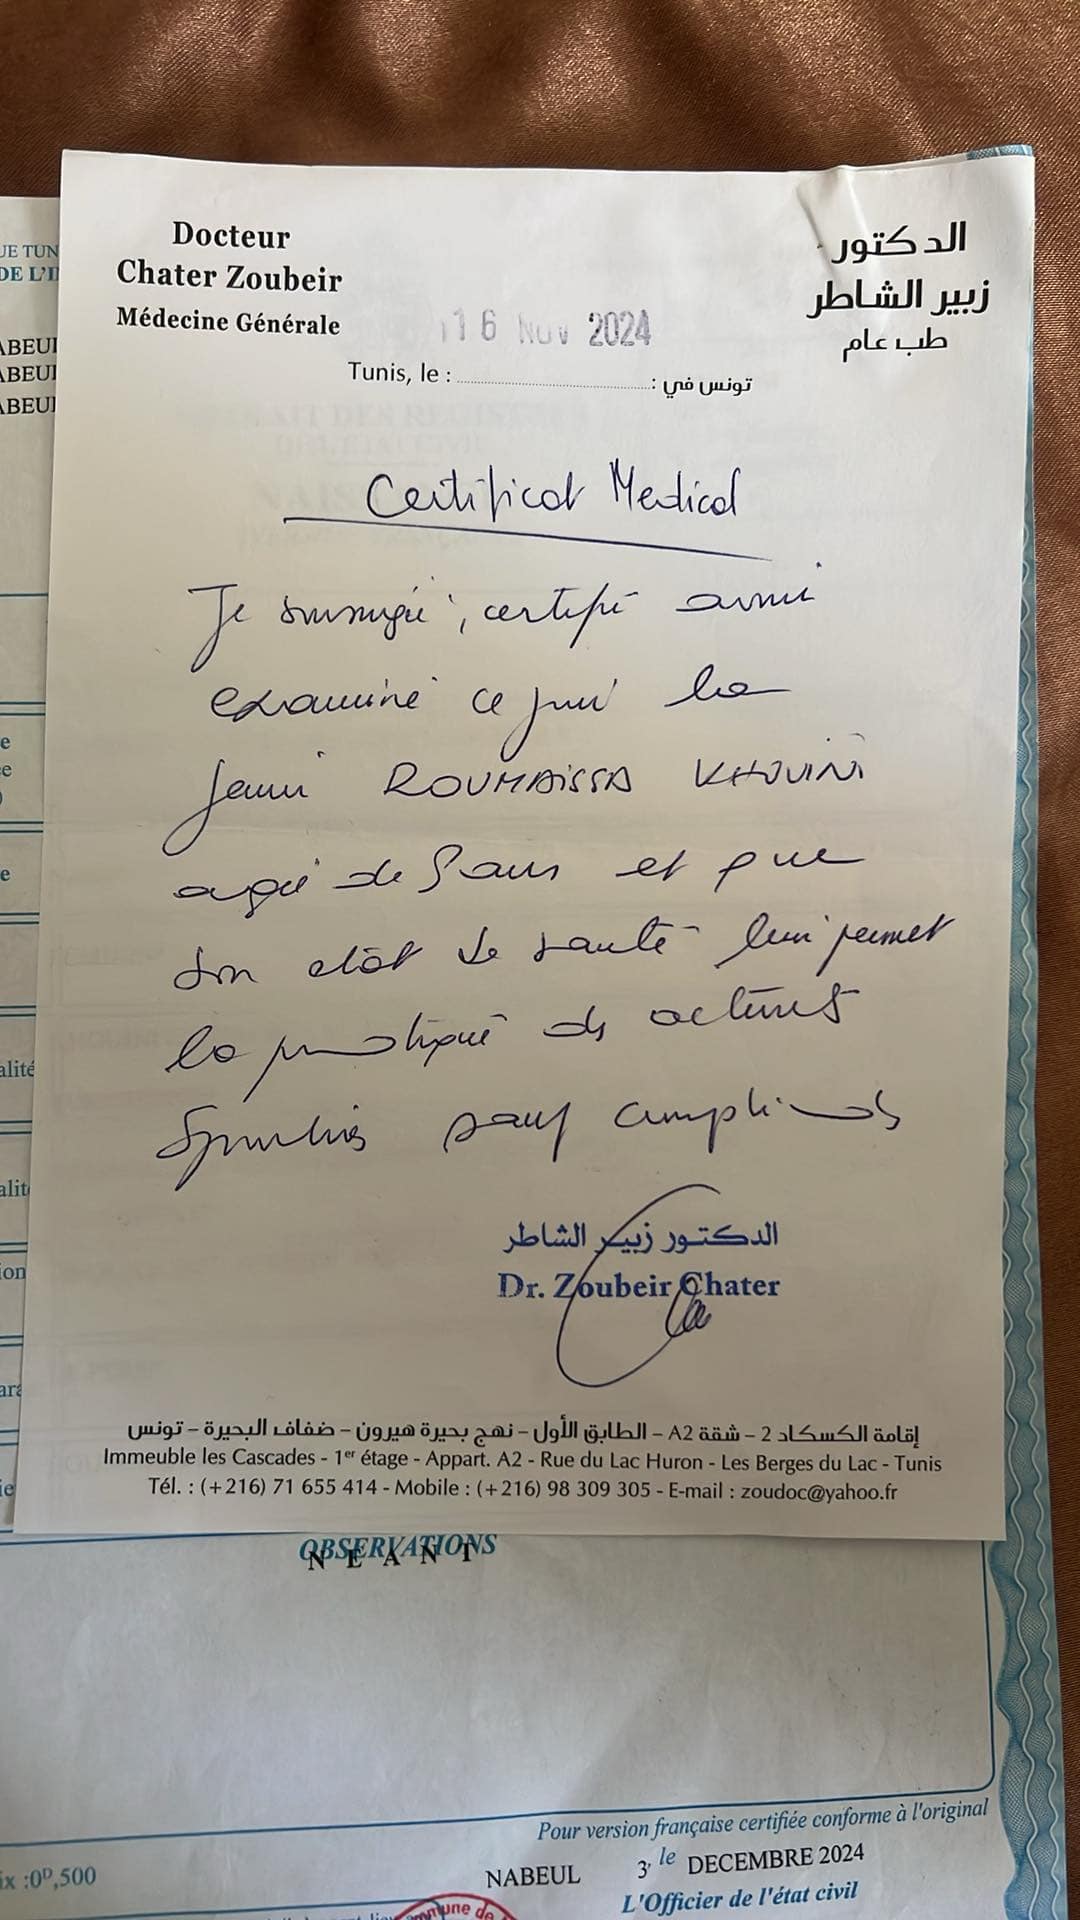 Docteur
Chater Zoubeir
Médecine Générale
الدكتور
زبير الشاطر
طب عام
16 NOV 2024
Tunis, le : تونس في :
Certificat Medical
Je soussigné, certifie avoir
examiné ce jour la
jeune ROUMAISSA KHOUINI
agée de 8 ans et que
son etat de santé lui permet
la pratique des activités
Sportives sauf complications
الدكتور زبير الشاطر
Dr. Zoubeir Chater
إقامة الكسكاد 2 - شقة A2 - الطابق الأول - نهج بحيرة هيرون - ضفاف البحيرة - تونس
Immeuble les Cascades - 1er étage - Appart. A2 - Rue du Lac Huron - Les Berges du Lac - Tunis
Tél. : (+216) 71 655 414 - Mobile : (+216) 98 309 305 - E-mail : zoudoc@yahoo.fr
OBSERVATIONS
NEANT
Pour version française certifiée conforme à l'original
NABEUL 3, le DECEMBRE 2024
L'Officier de l'état civil
ix :0D,500